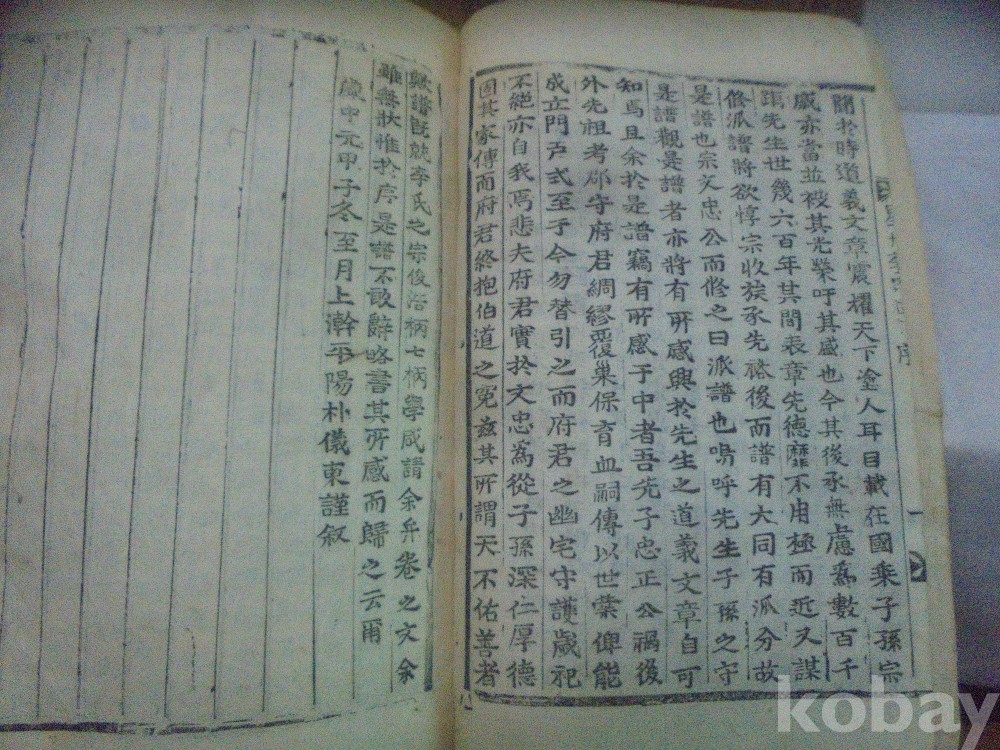 關於時道義文章震耀天下塗人耳目載在國乘子孫宗
戚亦當並被其光榮吁其盛也今其後承無慮爲數百千
距先生世幾六百年其間表章先德靡不用極而近又謀
修派譜將欲惇宗收族承先裕後而譜有大同有派分故
是譜也宗文忠公而修之曰派譜也嗚呼先生子孫之守
是譜觀是譜者亦將有所感興於先生之道義文章自可
知焉且余於是譜竊有所感于中者吾先子忠正公禍後
外先祖考郡守府君綢繆覆巢保育血嗣傳以世葉俾能
成立門戶式至于今勿替引之而府君之幽宅守護歲祀
不絕亦自我焉悲夫府君實於文忠爲從子孫深仁厚德
固其家傳而府君終抱伯道之冤玆其所謂天不佑善者
歟譜旣就李氏之宗後浩柄七柄學咸請余弁卷之文余
雖無狀惟於序是譜不敢辭略書其所感而歸之云爾
歲中元甲子冬至月上澣平陽朴儀東謹叙
序
一
kobay